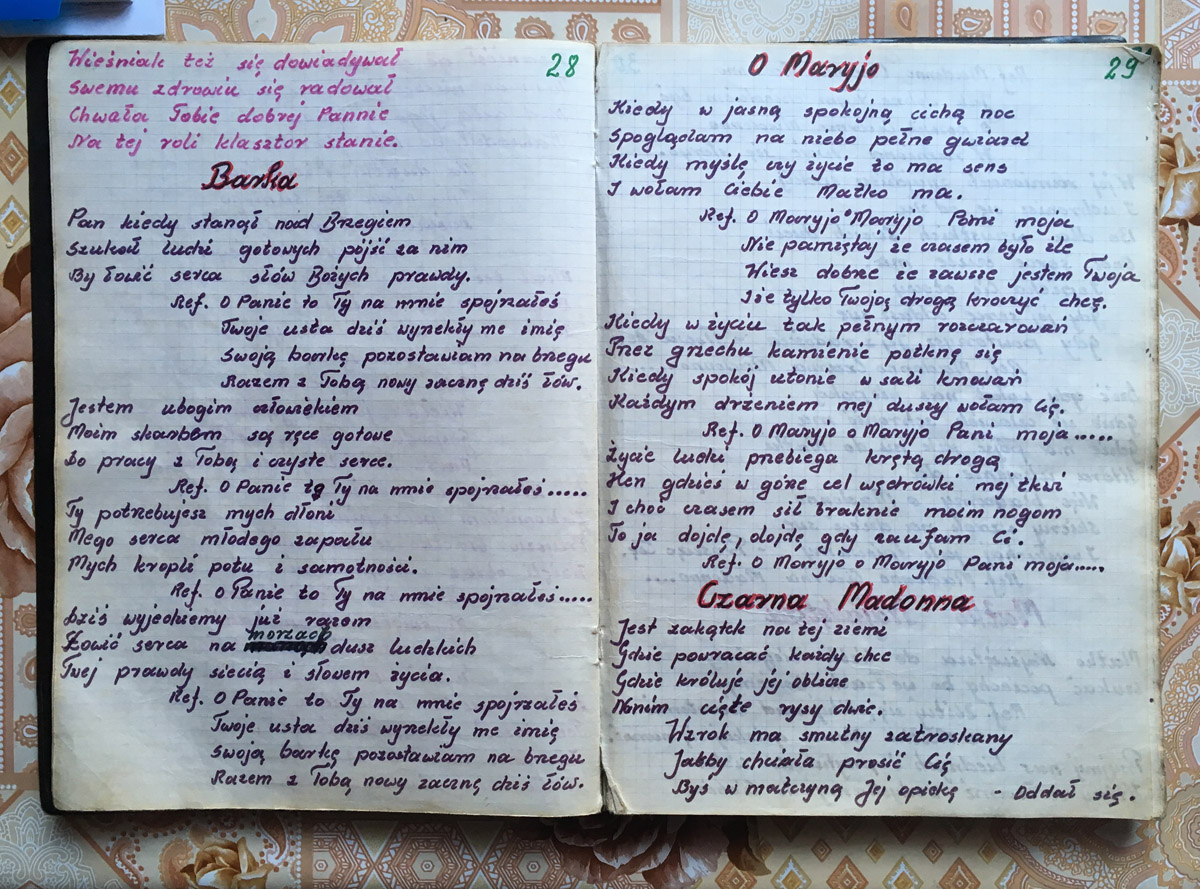 28
Wieśniak też się dowiadywał
Swemu zdrowiu się radował
Chwała Tobie dobrej Pannie
Na tej roli klasztor stanie.
Barka
Pan kiedy stanął nad Brzegiem
Szukał ludzi gotowych pójść za nim
By łowić serca słów Bożych prawdy.
Ref. O Panie to Ty na mnie spojrzałeś
Twoje usta dziś wyrzekły me imię
Swoją barkę pozostawiam na brzegu
Razem z Tobą nowy zacznę dziś łów.
Jestem ubogim człowiekiem
Moim skarbem są ręce gotowe
Do pracy z Tobą i czyste serce.
Ref. O Panie to Ty na mnie spojrzałeś.....
Ty potrzebujesz mych dłoni
Mego serca młodego zapału
Mych kropli potu i samotności.
Ref. O Panie to Ty na mnie spojrzałeś.....
Dziś wyjedziemy już razem
Łowić serca na morzach dusz ludzkich
Twej prawdy siecią i słowem życia.
Ref. O Panie to Ty na mnie spojrzałeś
Twoje usta dziś wyrzekły me imię
Swoją barkę pozostawiam na brzegu
Razem z Tobą nowy zacznę dziś łów.
29
O Maryjo
Kiedy w jasną spokojną cichą noc
Spoglądam na niebo pełne gwiazd
Kiedy myślę czy życie to ma sens
I wołam Ciebie Matko ma.
Ref. O Maryjo Maryjo Pani moja
Nie pamiętaj że czasem było źle
Wiesz dobrze że zawsze jestem Twoja
I że tylko Twoją drogą kroczyć chcę.
Kiedy w życiu tak pełnym rozczarowań
Przez grzechu kamienie potknę się
Kiedy spokój utonie w sali knowań
Każdym drżeniem mej duszy wołam Cię.
Ref. O Maryjo o Maryjo Pani moja.....
Życie ludzi przebiega krętą drogą
Hen gdzieś w górze cel wędrówki mej tkwi
I choć czasem sił braknie moim nogom
To ja dojdę, dojdę gdy zaufam Ci.
Ref. O Maryjo o Maryjo Pani moja.....
Czarna Madonna
Jest zakątek na tej ziemi
Gdzie powracać każdy chce
Gdzie króluje jej oblicze
Na nim cięte rysy dwie.
Wzrok ma smutny zatroskany
Jakby chciała prosić Cię
Byś w matczyną Jej opiekę - Oddał się.